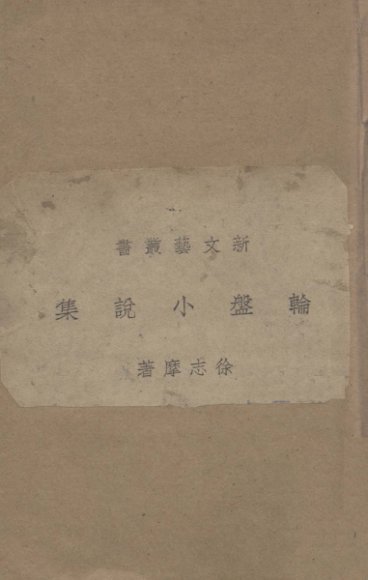 新文藝叢書
輪盤小說集
徐志摩著